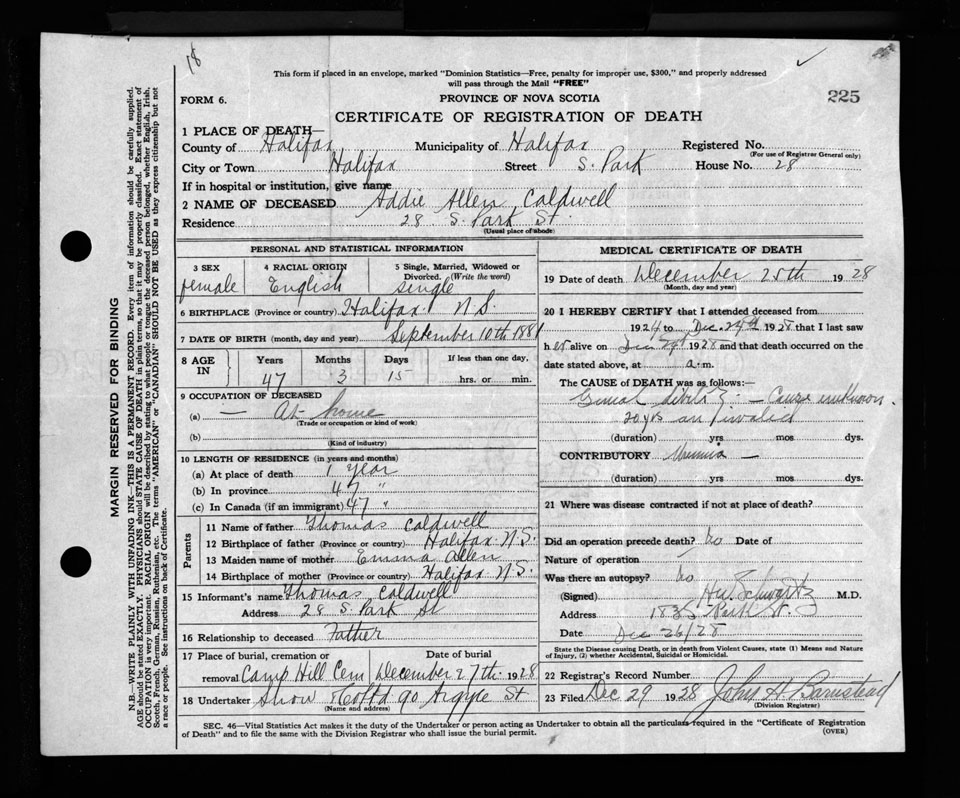 18
This form if placed in an envelope, marked "Dominion Statistics—Free, penalty for improper use, $300," and properly addressed
will pass through the Mail "FREE"
FORM 6.
PROVINCE OF NOVA SCOTIA
225
CERTIFICATE OF REGISTRATION OF DEATH
1 PLACE OF DEATH—
County of Halifax Municipality of Halifax Registered No.
(For use of Registrar General only)
City or Town Halifax Street S. Park House No. 28
If in hospital or institution, give name
2 NAME OF DECEASED Addie Allen Caldwell
Residence 28 S. Park St.
(Usual place of abode)
PERSONAL AND STATISTICAL INFORMATION
3 SEX 4 RACIAL ORIGIN 5 Single, Married, Widowed or Divorced. (Write the word)
female English single
6 BIRTHPLACE (Province or country) Halifax N.S.
7 DATE OF BIRTH (month, day and year) September 10th 1881
8 AGE IN Years Months Days If less than one day,
47 3 15 hrs. or min.
9 OCCUPATION OF DECEASED
(a) — At home
(Trade or occupation or kind of work)
(b)
(Kind of industry)
10 LENGTH OF RESIDENCE (in years and months)
(a) At place of death 1 year
(b) In province 47 "
(c) In Canada (if an immigrant) 47 "
Parents
11 Name of father Thomas Caldwell
12 Birthplace of father (Province or country) Halifax N.S.
13 Maiden name of mother Emma Allen
14 Birthplace of mother (Province or country) Halifax N.S.
15 Informant's name Thomas Caldwell
Address 28 S. Park St
16 Relationship to deceased Father
17 Place of burial, cremation or removal Camp Hill Cem Date of burial December 27th 1928
18 Undertaker Snow & Co Ltd 90 Argyle St
(Name and address)
MEDICAL CERTIFICATE OF DEATH
19 Date of death December 25th 1928
(Month, day and year)
20 I HEREBY CERTIFY that I attended deceased from
1924 to Dec. 24th 1928 that I last saw
her alive on Dec 24 1928 and that death occurred on the
date stated above, at a.m.
The CAUSE of DEATH was as follows:—
— Cause unknown
20 yrs an invalid
(duration) yrs mos dys.
CONTRIBUTORY —
(duration) yrs. mos. dys.
21 Where was disease contracted if not at place of death?
Did an operation precede death? No Date of
Nature of operation
Was there an autopsy? No
(Signed) H.W. Schwartz M.D.
Address
Date Dec 26/28
State the Disease causing Death, or in death from Violent Causes, state (1) Means and Nature of Injury, (2) whether Accidental, Suicidal or Homicidal.
22 Registrar's Record Number
23 Filed Dec 29 1928 John H Barnstead
(Division Registrar)
SEC. 46—Vital Statistics Act makes it the duty of the Undertaker or person acting as Undertaker to obtain all the particulars required in the "Certificate of Registration
of Death" and to file the same with the Division Registrar who shall issue the burial permit.
(OVER)
MARGIN RESERVED FOR BINDING
N.B.—WRITE PLAINLY WITH UNFADING INK—THIS IS A PERMANENT RECORD. Every item of information should be carefully supplied.
AGE should be stated EXACTLY. PHYSICIANS should STATE CAUSE OF DEATH in plain terms, so that it may be properly classified. Exact statement of
OCCUPATION is very important. RACIAL ORIGIN will be described by stating to what people or tongue the deceased person belonged, whether English, Irish,
Scotch, French, German, Russian, Ruthenian, etc. The terms "AMERICAN" or "CANADIAN" SHOULD NOT BE USED as they express citizenship but not
a race or people. See instructions on back of Certificate.